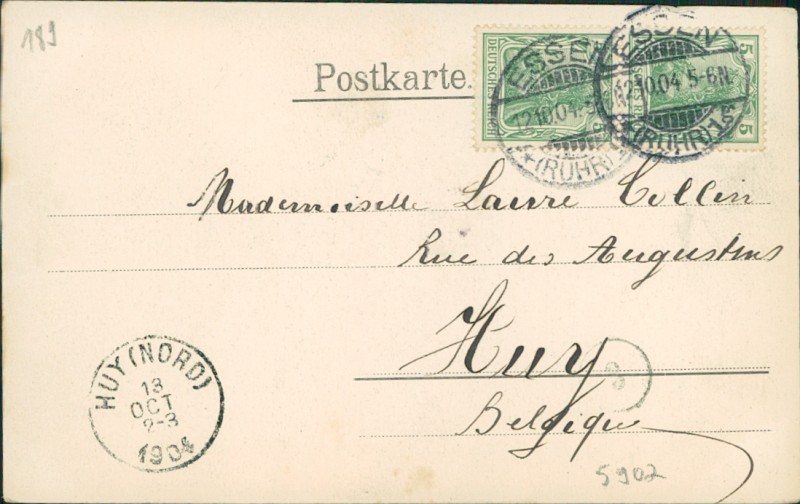 189
Postkarte.
ESSEN
12.10.04.5
*(RUHR)1
ESSEN
12.10.04 5-6N.
*(RUHR)1s
DEUTSCHES
5
5
5
Mademoiselle Laure Collin
Rue des Augustins
Huy
Belgique
HUY (NORD)
13
OCT
2-3
1904
5902